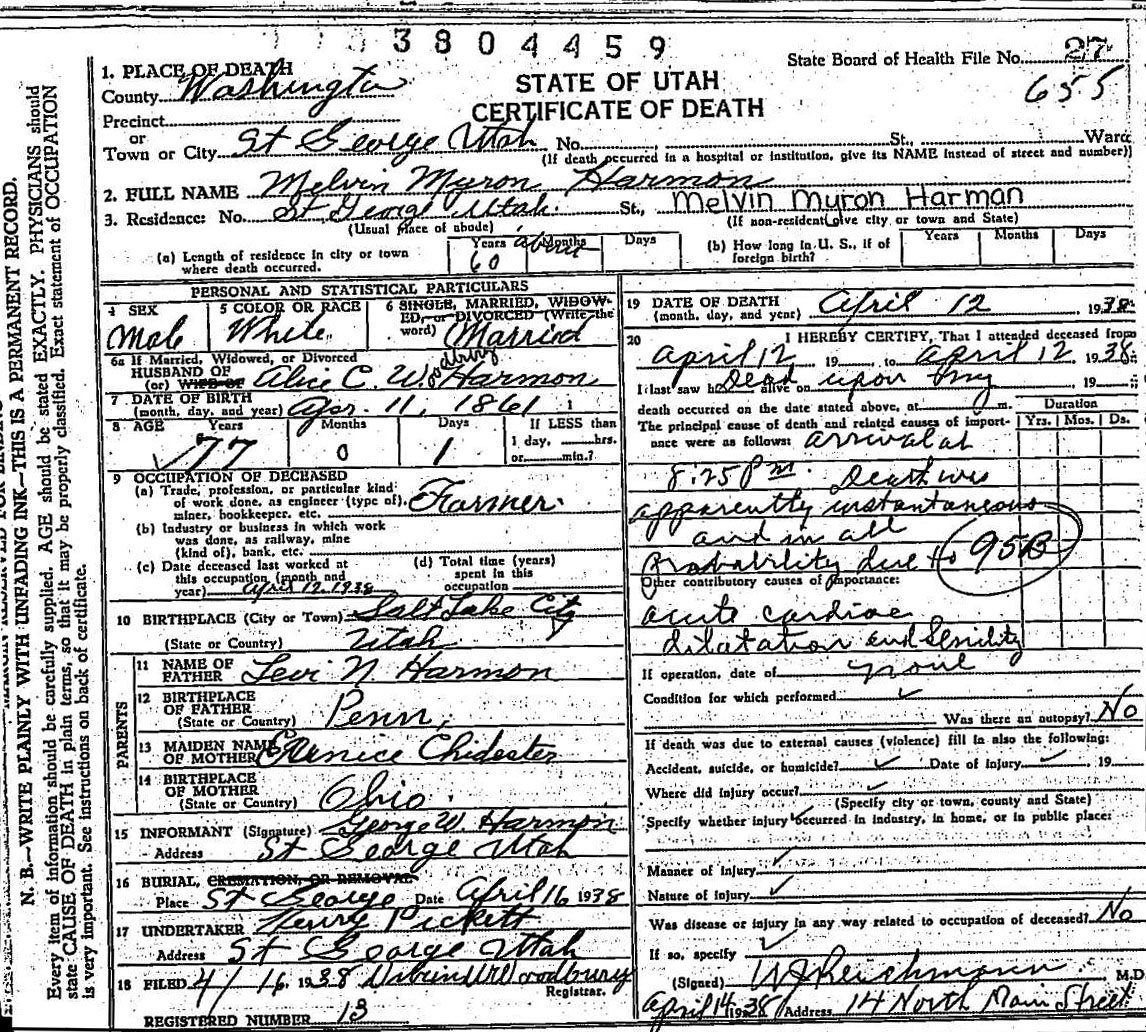 3804459
State Board of Health File No. 27
655
STATE OF UTAH
CERTIFICATE OF DEATH
1. PLACE OF DEATH
County Washington
Precinct
or
Town or City St George Utah No. St., Ward
(If death occurred in a hospital or institution, give its NAME instead of street and number)
2. FULL NAME Melvin Myron Harmon
Melvin Myron Harman
3. Residence: No. St George Utah. St.,
(Usual place of abode) (If non-resident give city or town and State)
(a) Length of residence in city or town where death occurred. Years Months Days
about
60
(b) How long in U. S., if of foreign birth? Years Months Days
PERSONAL AND STATISTICAL PARTICULARS
4 SEX Male
5 COLOR OR RACE White
6 SINGLE, MARRIED, WIDOWED, or DIVORCED (Write the word) Married
6a If Married, Widowed, or Divorced
HUSBAND OF
(or) WIFE OF Alice C. Harmon
7 DATE OF BIRTH
(month, day, and year) Apr. 11, 1861
8 AGE Years Months Days If LESS than
77 0 1 1 day, hrs.
or min.?
9 OCCUPATION OF DECEASED
(a) Trade, profession, or particular kind
of work done, as engineer (type of),
miner, bookkeeper, etc. Farmer
(b) Industry or business in which work
was done, as railway, mine
(kind of), bank, etc.
(c) Date deceased last worked at
this occupation (month and
year) April 12, 1938
(d) Total time (years)
spent in this
occupation
10 BIRTHPLACE (City or Town) Salt Lake City
(State or Country) Utah
PARENTS
11 NAME OF
FATHER Levi N Harmon
12 BIRTHPLACE
OF FATHER
(State or Country) Penn,
13 MAIDEN NAME
OF MOTHER Eunice Chidester
14 BIRTHPLACE
OF MOTHER
(State or Country) Ohio.
15 INFORMANT (Signature) George W. Harmon
Address St George Utah
16 BURIAL, CREMATION, OR REMOVAL
Place St George Date April 16 1938
17 UNDERTAKER Henry Pickett
Address St George Utah
18 FILED 4/16, 1938 Woodbury
Registrar.
REGISTERED NUMBER 13
19 DATE OF DEATH
(month, day, and year) April 12 1938
20 I HEREBY CERTIFY, That I attended deceased from
April 12 19 , to April 12 1938
I last saw h alive on Dead upon my 19
death occurred on the date stated above, at m.
Duration
The principal cause of death and related causes of importance were as follows: Yrs. Mos. Ds.
arrival at
8:25 P m. Death was
apparently instantaneous
and in all
probability due to 95B
Other contributory causes of importance:
acute cardiac
dilatation and Senility
If operation, date of none
Condition for which performed
Was there an autopsy? No
If death was due to external causes (violence) fill in also the following:
Accident, suicide, or homicide? Date of injury 19
Where did injury occur?
(Specify city or town, county and State)
Specify whether injury occurred in industry, in home, or in public place:
Manner of injury
Nature of injury
Was disease or injury in any way related to occupation of deceased? No
If so, specify
(Signed) W J Reichmann M.D
April 14 1938 Address 14 North Main Street
N. B.—WRITE PLAINLY WITH UNFADING INK—THIS IS A PERMANENT RECORD.
Every item of information should be carefully supplied. AGE should be stated EXACTLY. PHYSICIANS should
state CAUSE OF DEATH in plain terms, so that it may be properly classified. Exact statement of OCCUPATION
is very important. See instructions on back of certificate.